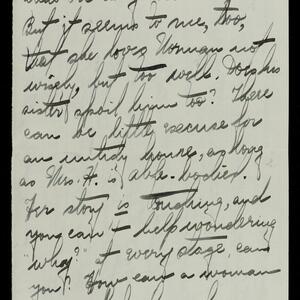 But it seems to me, too,
that she loves Norman not
wisely, but too well. Does his
sister spoil him too? There
can be little excuse for
an untidy house, as long
as Mrs. H. is able-bodied.
Her story is touching, and
you can't help wondering
"why?" at every stage, can
you? How can a woman